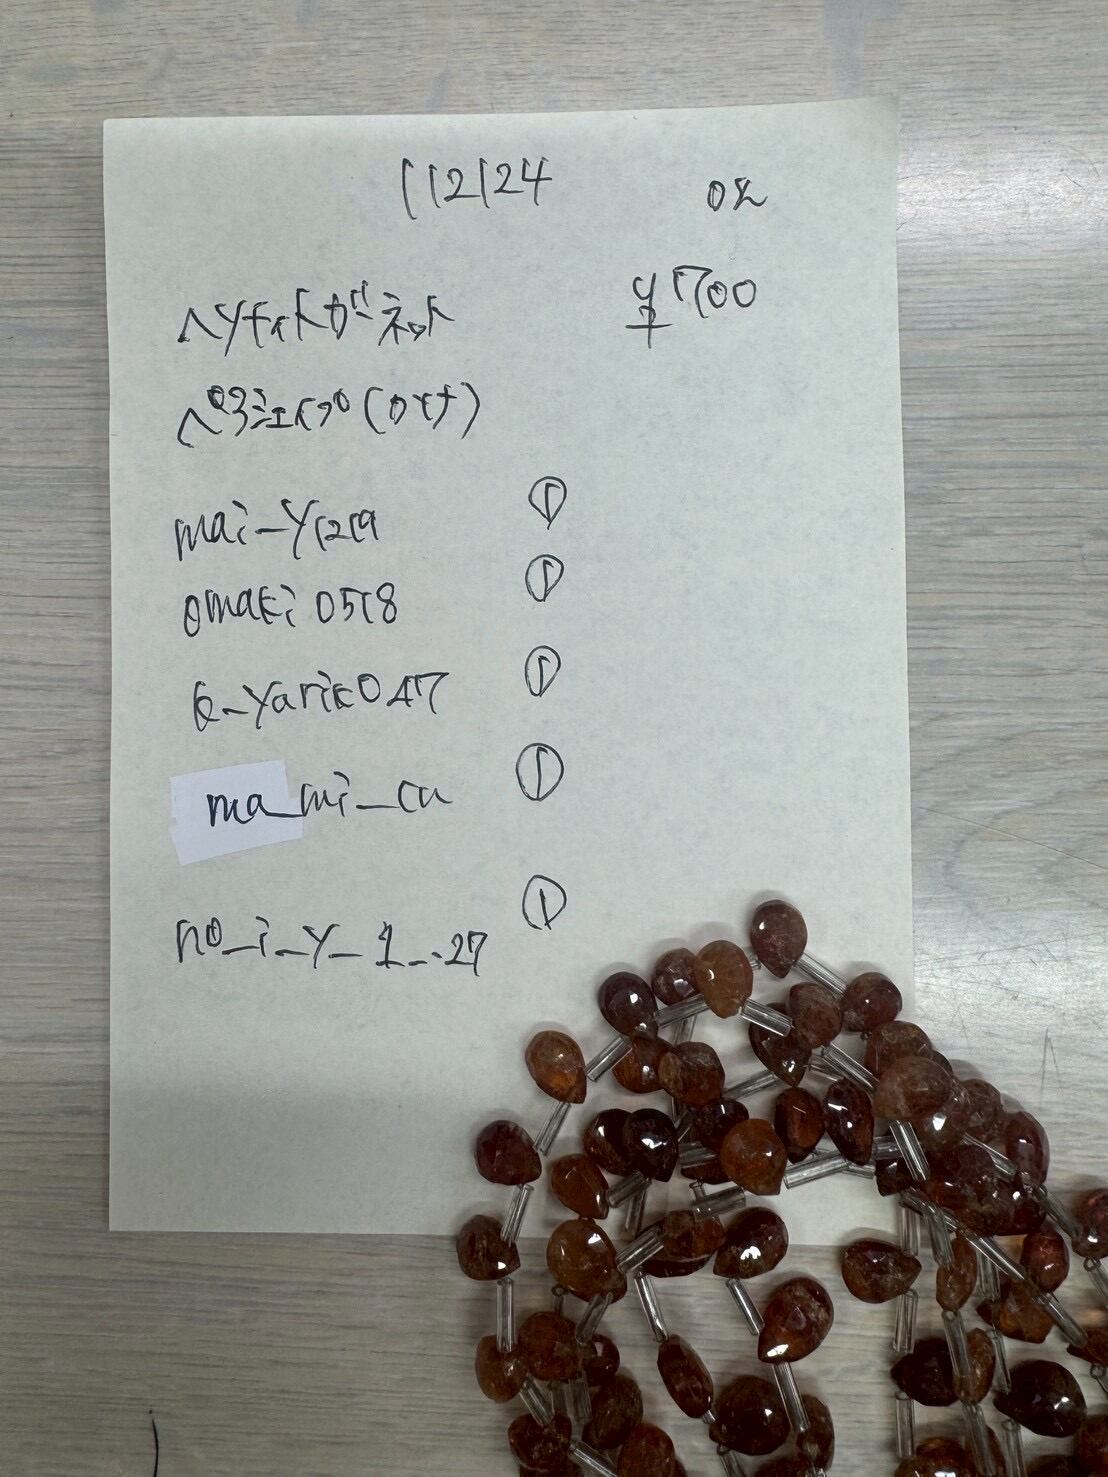 112124 02
ヘソナイトガーネット ¥1700
ペアシェイプ(ロット)
mai_y1219 ①
omaki0518 ①
k_yariko47 ①
ma_mi_cu ①
no_i_y_1_.27 ①